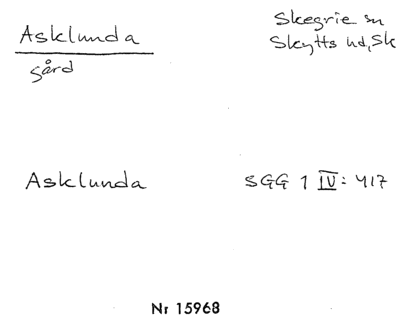 Asklunda
gård
Skegrie sn
Skytts hd, Sk
Asklunda
SGG 1 IV: 417
Nr 15968